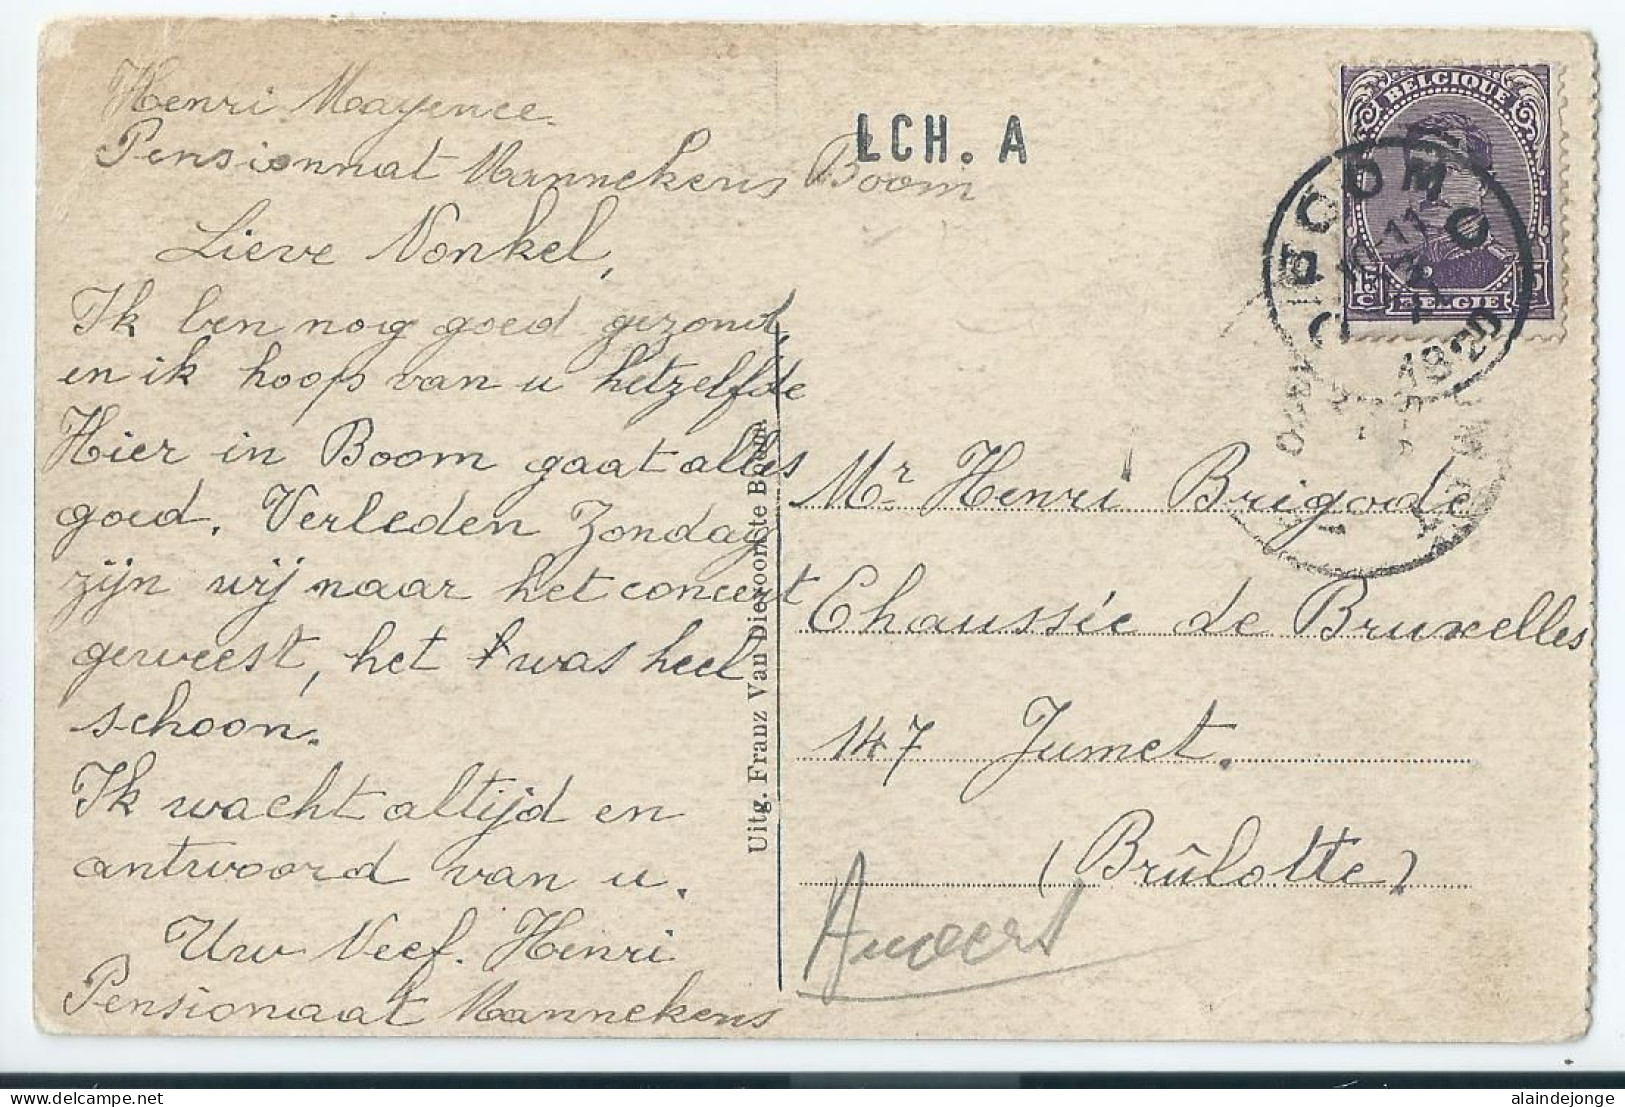 Henri Mayence.
Pensionnat Mannekens Boom
Lieve Nonkel,
Ik ben nog goed gezond,
en ik hoop van u hetzelfde
Hier in Boom gaat alles
goed. Verleden Zondag
zijn wij naar het concert
geweest, het was heel
schoon.
Ik wacht altijd en
antwoord van u.
Uw Neef. Henri
Pensionaat Mannekens
Uitg. Franz Van Dievoordte Boom
LCH. A
BELGIQUE
15 C
BELGIE
BOOM
10-11
1920
Mr Henri Brigode
Chaussée de Bruxelles
147 Jumet.
(Brûlotte)
Anvers
alaindejonge